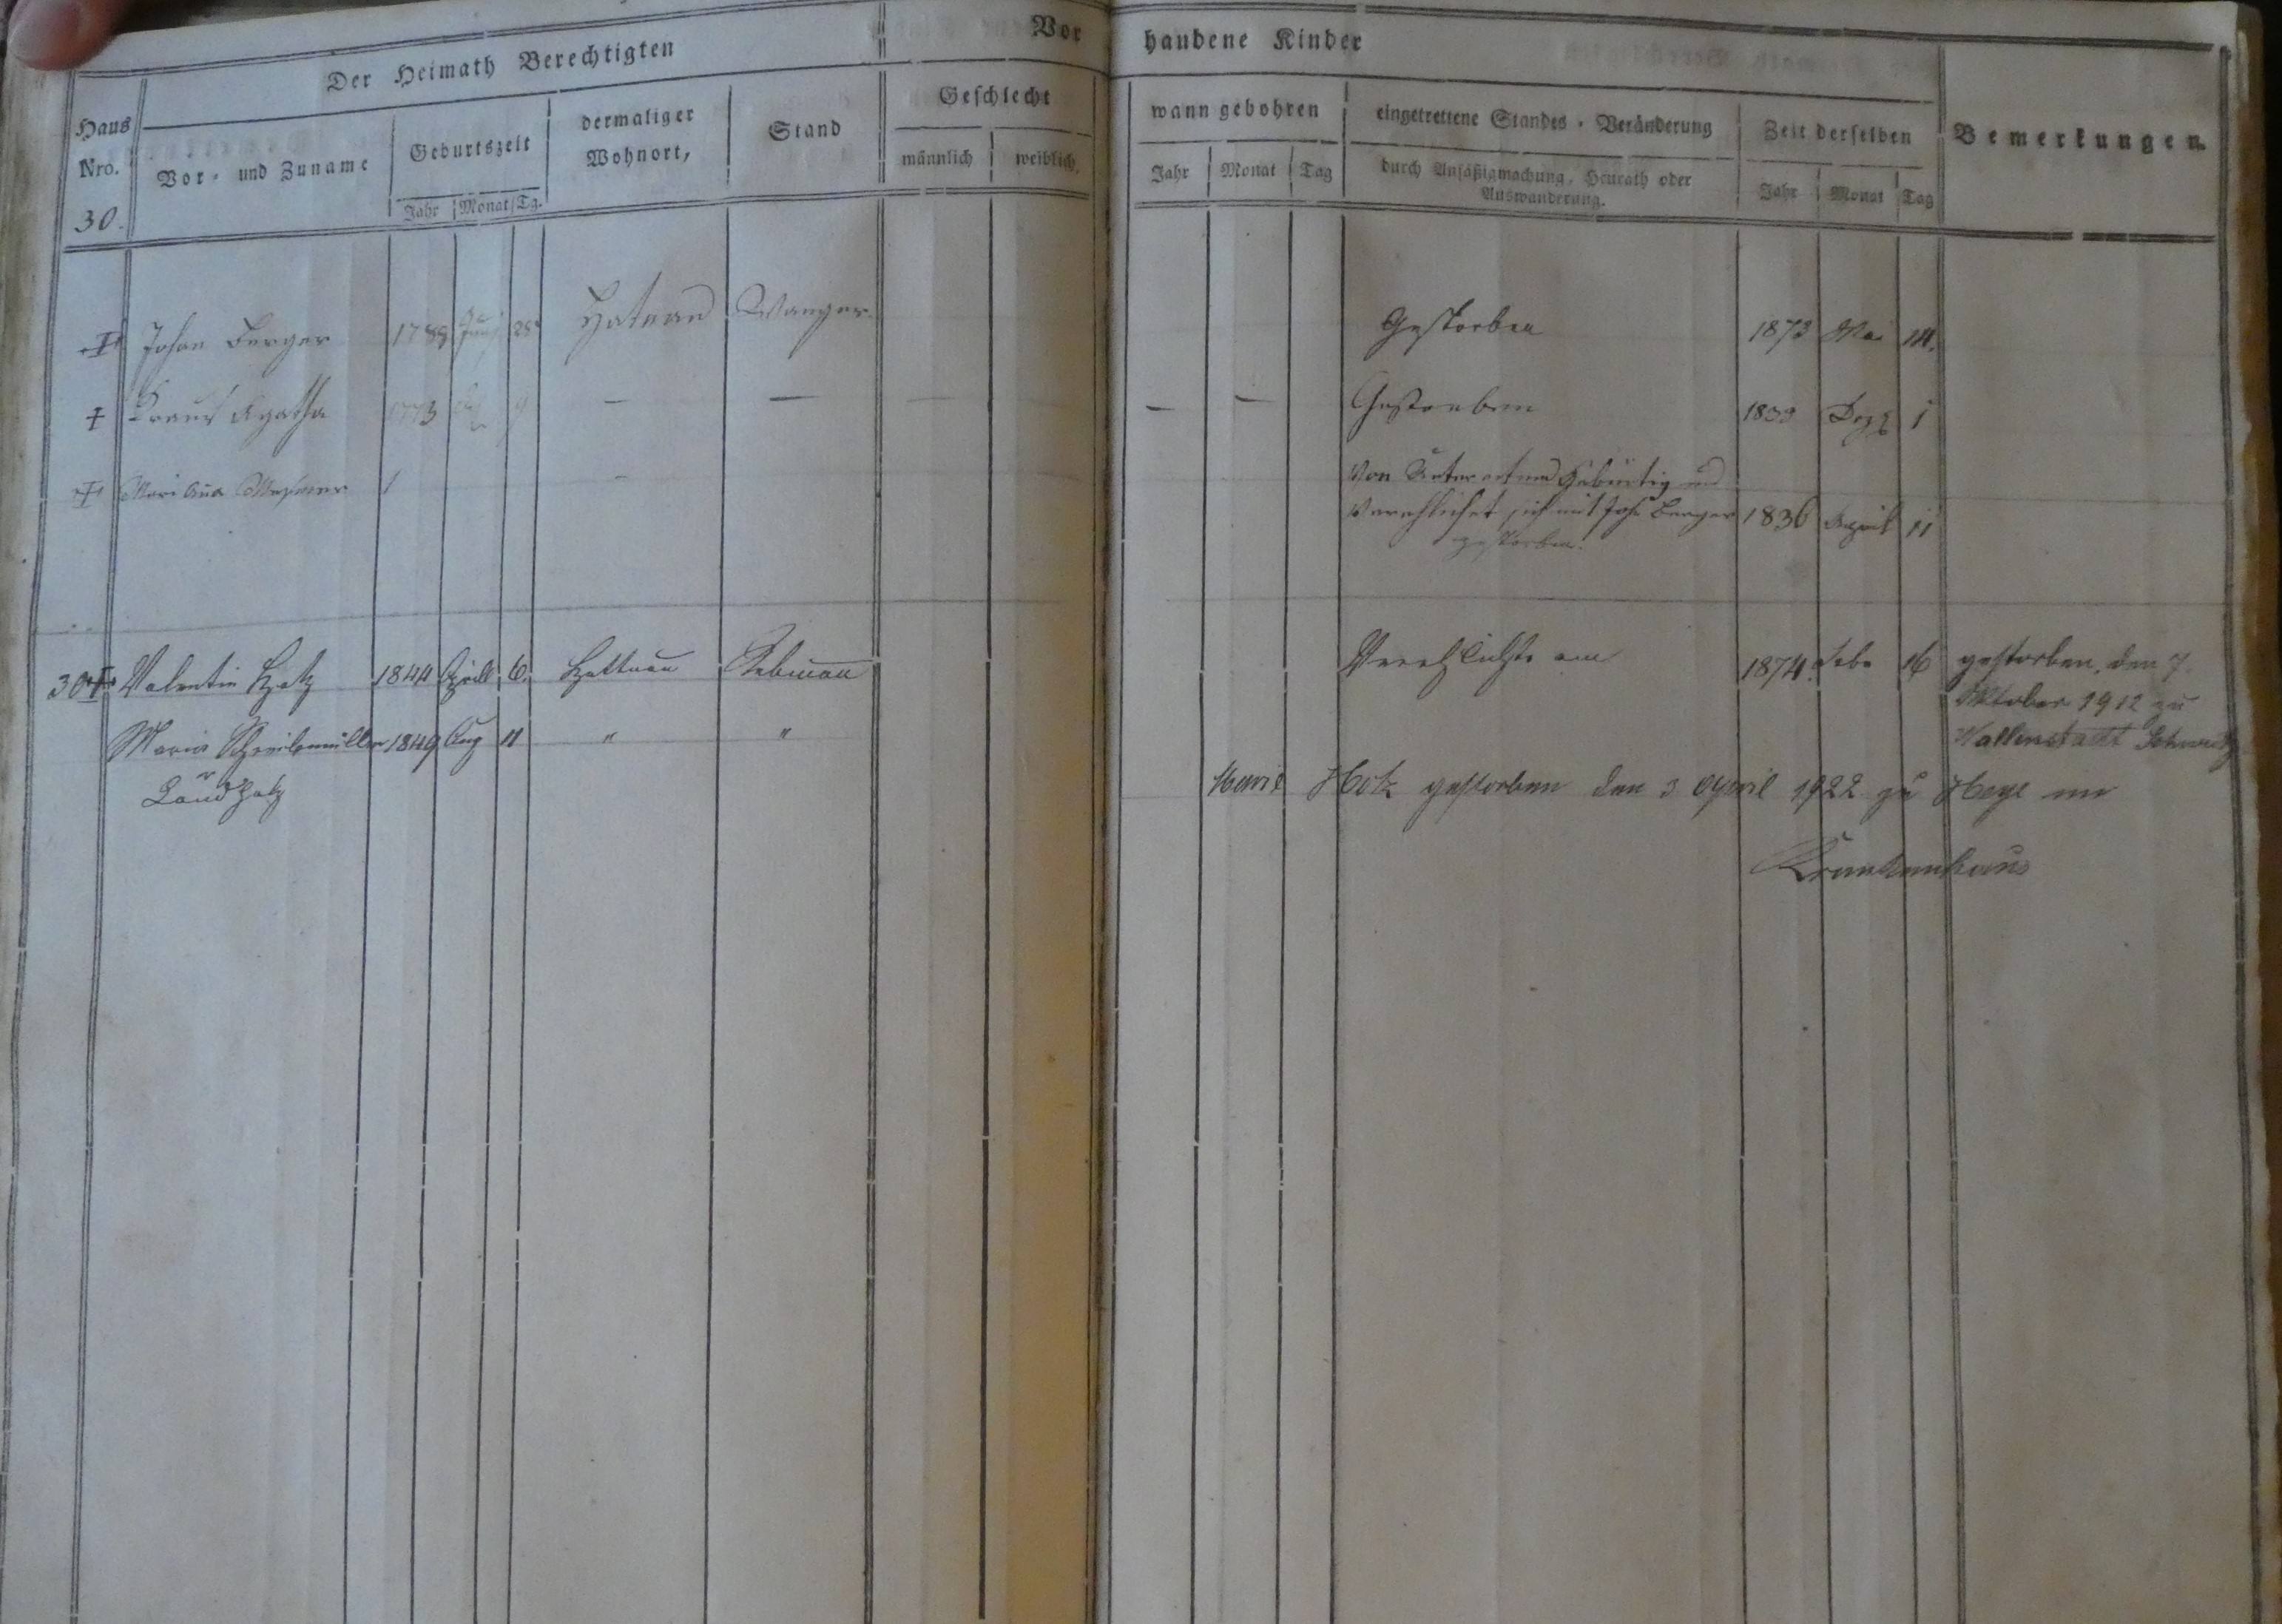 Der Heimath Berechtigten
Vorhandene Kinder
Haus Nro. 30.
Vor- und Zuname
Geburtszeit
Jahr Monat Tg.
dermaliger Wohnort,
Stand
Geschlecht
männlich weiblich.
wann gebohren
Jahr Monat Tag
eingetrettene Standes-Veränderung
durch Ansäßigmachung, Heurath oder
Auswanderung.
Zeit derselben
Jahr Monat Tag
Bemerkungen.
Johan Berger 1789 Juni 28 Hatnau Gestorben 1873 Mai 14.
Kraus Agatha 1773 9 — — — — — Gestorben 1833 Dez 1
Mari Ana Messmer 1 —
Von gebürtig und
Verehlichet sich mit Joh Berger 1836 April 11
gestorben.
30 Valentin Hotz 1844 April 6. Hattnau Rebmann Verehlichte am 1874. Febr 16 gestorben den 7.
Oktober 1912 zu
Wallenstadt Schweitz
Maria Schreibmüller 1849 Aug 11 " "
Hotz
Marie Hotz gestorben den 3 April 1922 zu Hege im
Krankenhaus